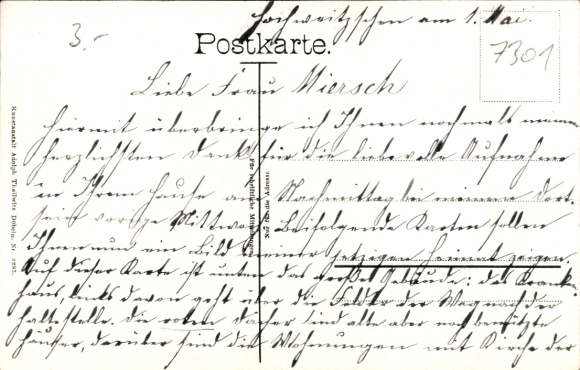 3.-
Hochweitzschen am 1. Mai.
7301
Postkarte.
Liebe Frau Miersch
Hiermit überbringe ich Ihnen nochmals meinen
herzlichsten Dank für die liebevolle Aufnahme
in Ihrem Hause am Nachmittag bei meinem Dort-
sein vorige Mittwoch. Beifolgende Karten sollen
Ihnen nun ein Bild meiner jetzigen Heimat zeigen.
Auf dieser Karte ist unten das große Gebäude: das Kranken-
haus, links davon geht über die Felder der Weg nach der
Haltestelle. Die roten Dächer sind alte aber noch benützte
Häuser, darüber sind die Wohnungen mit Kirche der
Für schriftliche Mitteilungen
Nur für die Adresse
Kunstanstalt Adolph Thallwitz, Döbeln. Nr.